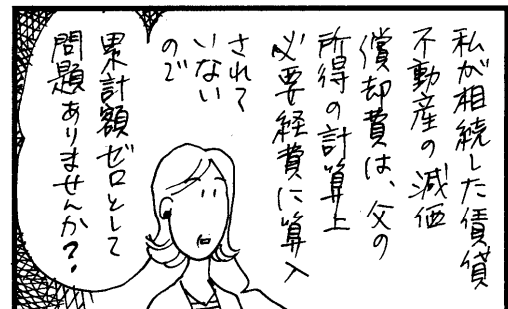 私が相続した賃貸
不動産の減価
償却費は、父の
所得の計算上
必要経費に算入
されて
いない
ので
累計額ゼロとして
問題ありませんか?